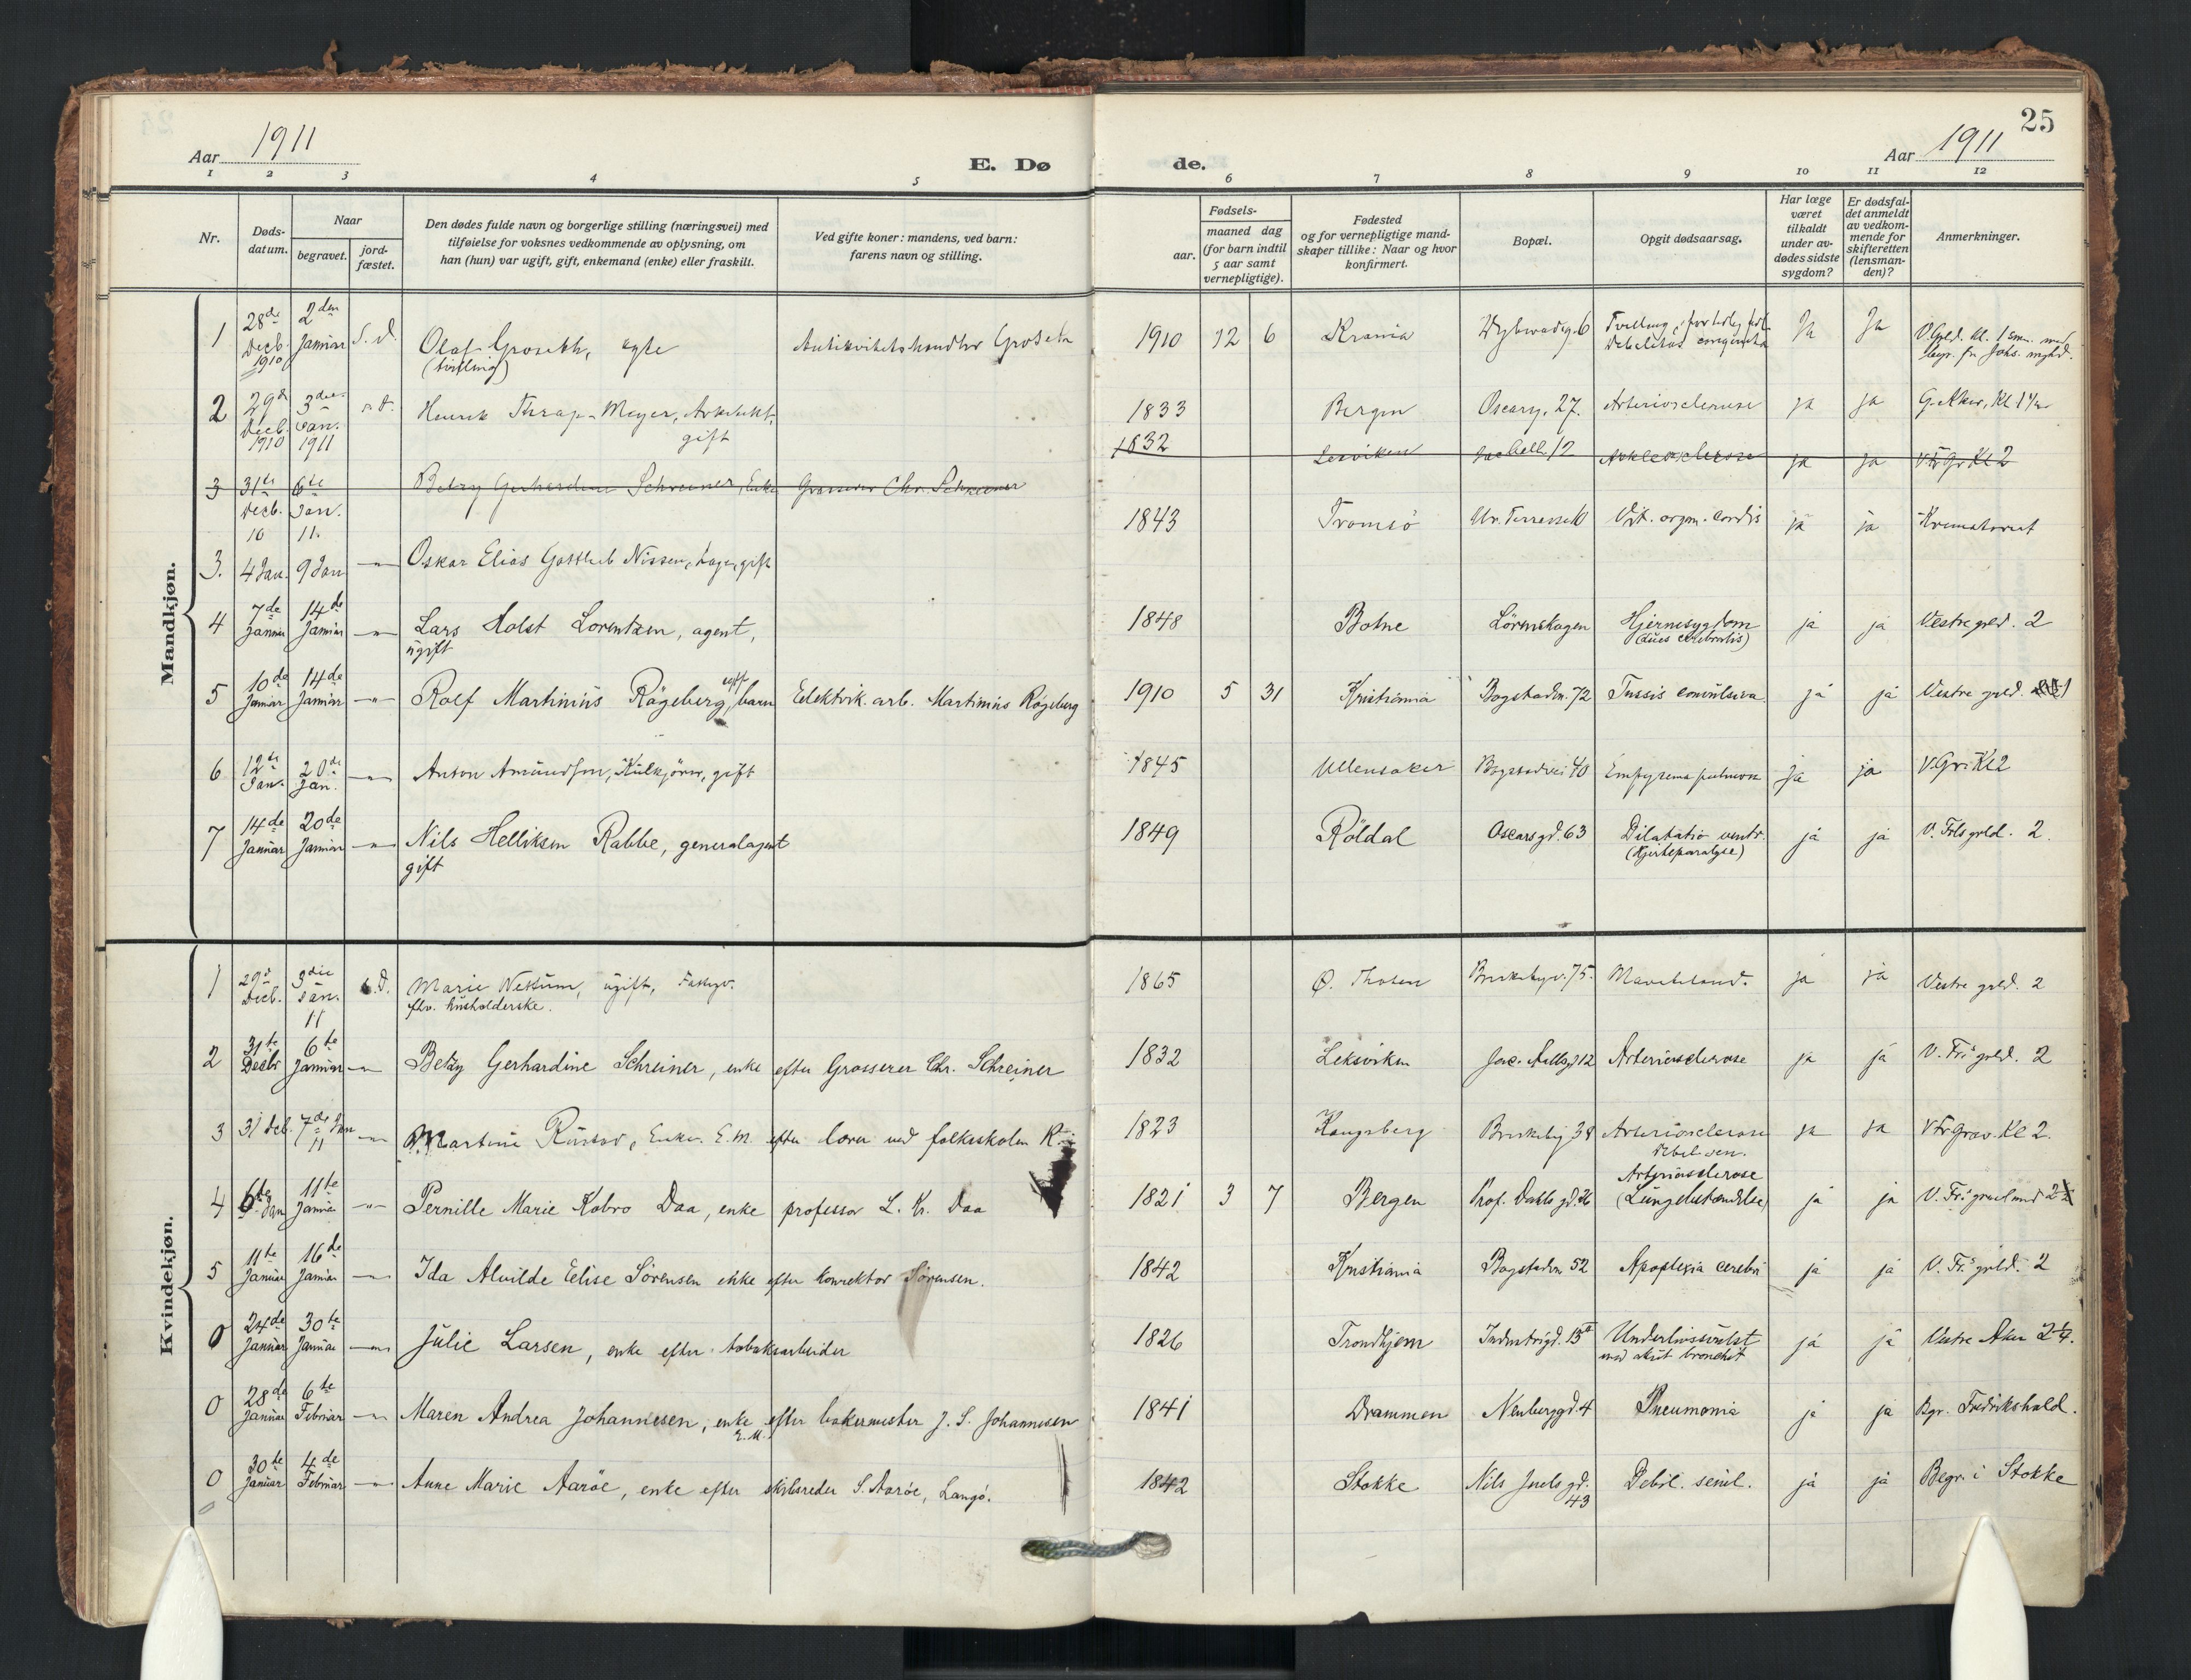 25
Aar 1911
E. Døde.
Aar 1911
1 2 3 4 5 6 7 8 9 10 11 12
Nr.
Dødsdatum.
Naar
begravet.
jordfæstet.
Den dødes fulde navn og borgerlige stilling (næringsvei) med
tilføielse for voksnes vedkommende av oplysning, om
han (hun) var ugift, gift, enkemand (enke) eller fraskilt.
Ved gifte koner: mandens, ved barn:
farens navn og stilling.
Fødsels-
aar.
maaned dag
(for barn indtil
5 aar samt
vernepligtige).
Fødested
og for vernepligtige mand-
skaper tillike: Naar og hvor
konfirmert.
Bopæl.
Opgit dødsaarsag.
Har læge
været
tilkaldt
under av-
dødes sidste
sygdom?
Er dødsfal-
det anmeldt
av vedkom-
mende for
skifteretten
(lensman-
den)?
Anmerkninger.
Mandkjøn.
1 28de Decb. 1910 2den Januar S. D. Olaf Groseth, ægte (tvilling) Antikvitetshandler Groseth 1910 12 6 Krania Tvilling, Ja Ja
2 29de Decb. 1910 3die Jan. 1911 Henrik Thrap-Meyer, Arkitekt, gift 1833 Bergen Oscarg. 27. Arteriosclerose ja ja
3 31te Decb. 10 6te Jan. 11. Betzy Gerhardine Schreiner, Enke Grosserer Chr. Schreiner 1832 Lexviken 12 Arteriosclerose ja ja V Fr Gr Kl 2
3. 4 Jan. 9 Jan -"- Oskar Elias Gottlieb Nissen, Læge, gift 1843 Tromsö Ur. Terrasse 10 Vit. organ. cordis ja ja Krematoriet
4 7de Januar 14de Januar -"- Lars Holst Lorentzen, agent, ugift 1848 Botne Lörenskogen Hjernesygdom (Lues cerebralis) ja ja Vestre grld. 2
5 10de Januar 14de Januar -"- Rolf Martinius Rögeberg, barn Elektrik. arb. Martinius Rögeberg 1910 5 31 Kristiania Bogstadvn. 72 Tussis convulsiva ja ja Vestre grld.
6 12te Jan. 20de Jan. -"- Anton Amundsen, Kulkjörer, gift 1845 Ullensaker Bogstadvei 40 Emfysema pulmon Ja ja V. Gr. Kl 2
7 14de Januar 20de Januar -"- Nils Helliksen Rabbe, generalagent gift 1849 Röldal Oscarsgd. 63 Dilatatio ventr. (Hjerteparalyse) ja ja V. Frls grld. 2.
Kvindekjøn.
1 29de Decb. 3die Jan. 11 S. D. Marie Nettum, ugift, fhv. husholderske. 1865 Ø. Thoten Briskebyv. 75. ja ja Vestre grld. 2
2 31te Decbr 6te Januar -"- Betzy Gerhardine Schreiner, enke efter Grosserer Chr. Schreiner 1832 Leksviken Jac. Aallsgd 12 Arteriosclerose ja ja V. Fr. grld. 2
3 31 Dcb. 7de Jan 11 -"- Martine Rustad, Enke. E.M. efter lærer ved folkeskolen R. 1823 Kongsberg Briskebyg 38 Arteriosclerose Debil. sen. ja ja V Fr Grav. Kl 2.
4 6te Jan 11te Januar -"- Pernille Marie Kobro Daa, enke professor L. Kr. Daa 1821 3 7 Bergen Prof. Dahls gd. 26 Arteriosclerose (Lungebetændelse) ja ja V. Fr. gravlund 2
5 11te Januar 16de Januar -"- Ida Alvilde Eelise Sörensen enke efter konrektor Sörensen. 1842 Kristiania Bogstadvn 52 Apoplexia cerebri ja ja V. Fr. grld. 2
0 24de Januar 30te Januar -"- Julie Larsen, enke efter tobaksarbeider 1826 Trondhjem Industrigd. 15 Underlivssvulst med akut bronchit ja ja Vestre Aker 2 ¼.
0 28de Januar 6te Februar -"- Maren Andrea Johannesen, enke E.M. efter bakermester J. S. Johannesen 1841 Drammen Neuberggd. 4 Pneumonia ja ja Bgr. Fredrikshald.
0 30te Januar 4de Februar -"- Anne Marie Aaröe, enke efter skibsreder S. Aaröe, Langö. 1842 Stokke Nils Juels gd. 43 Debil. senil. ja ja Begr. i Stokke